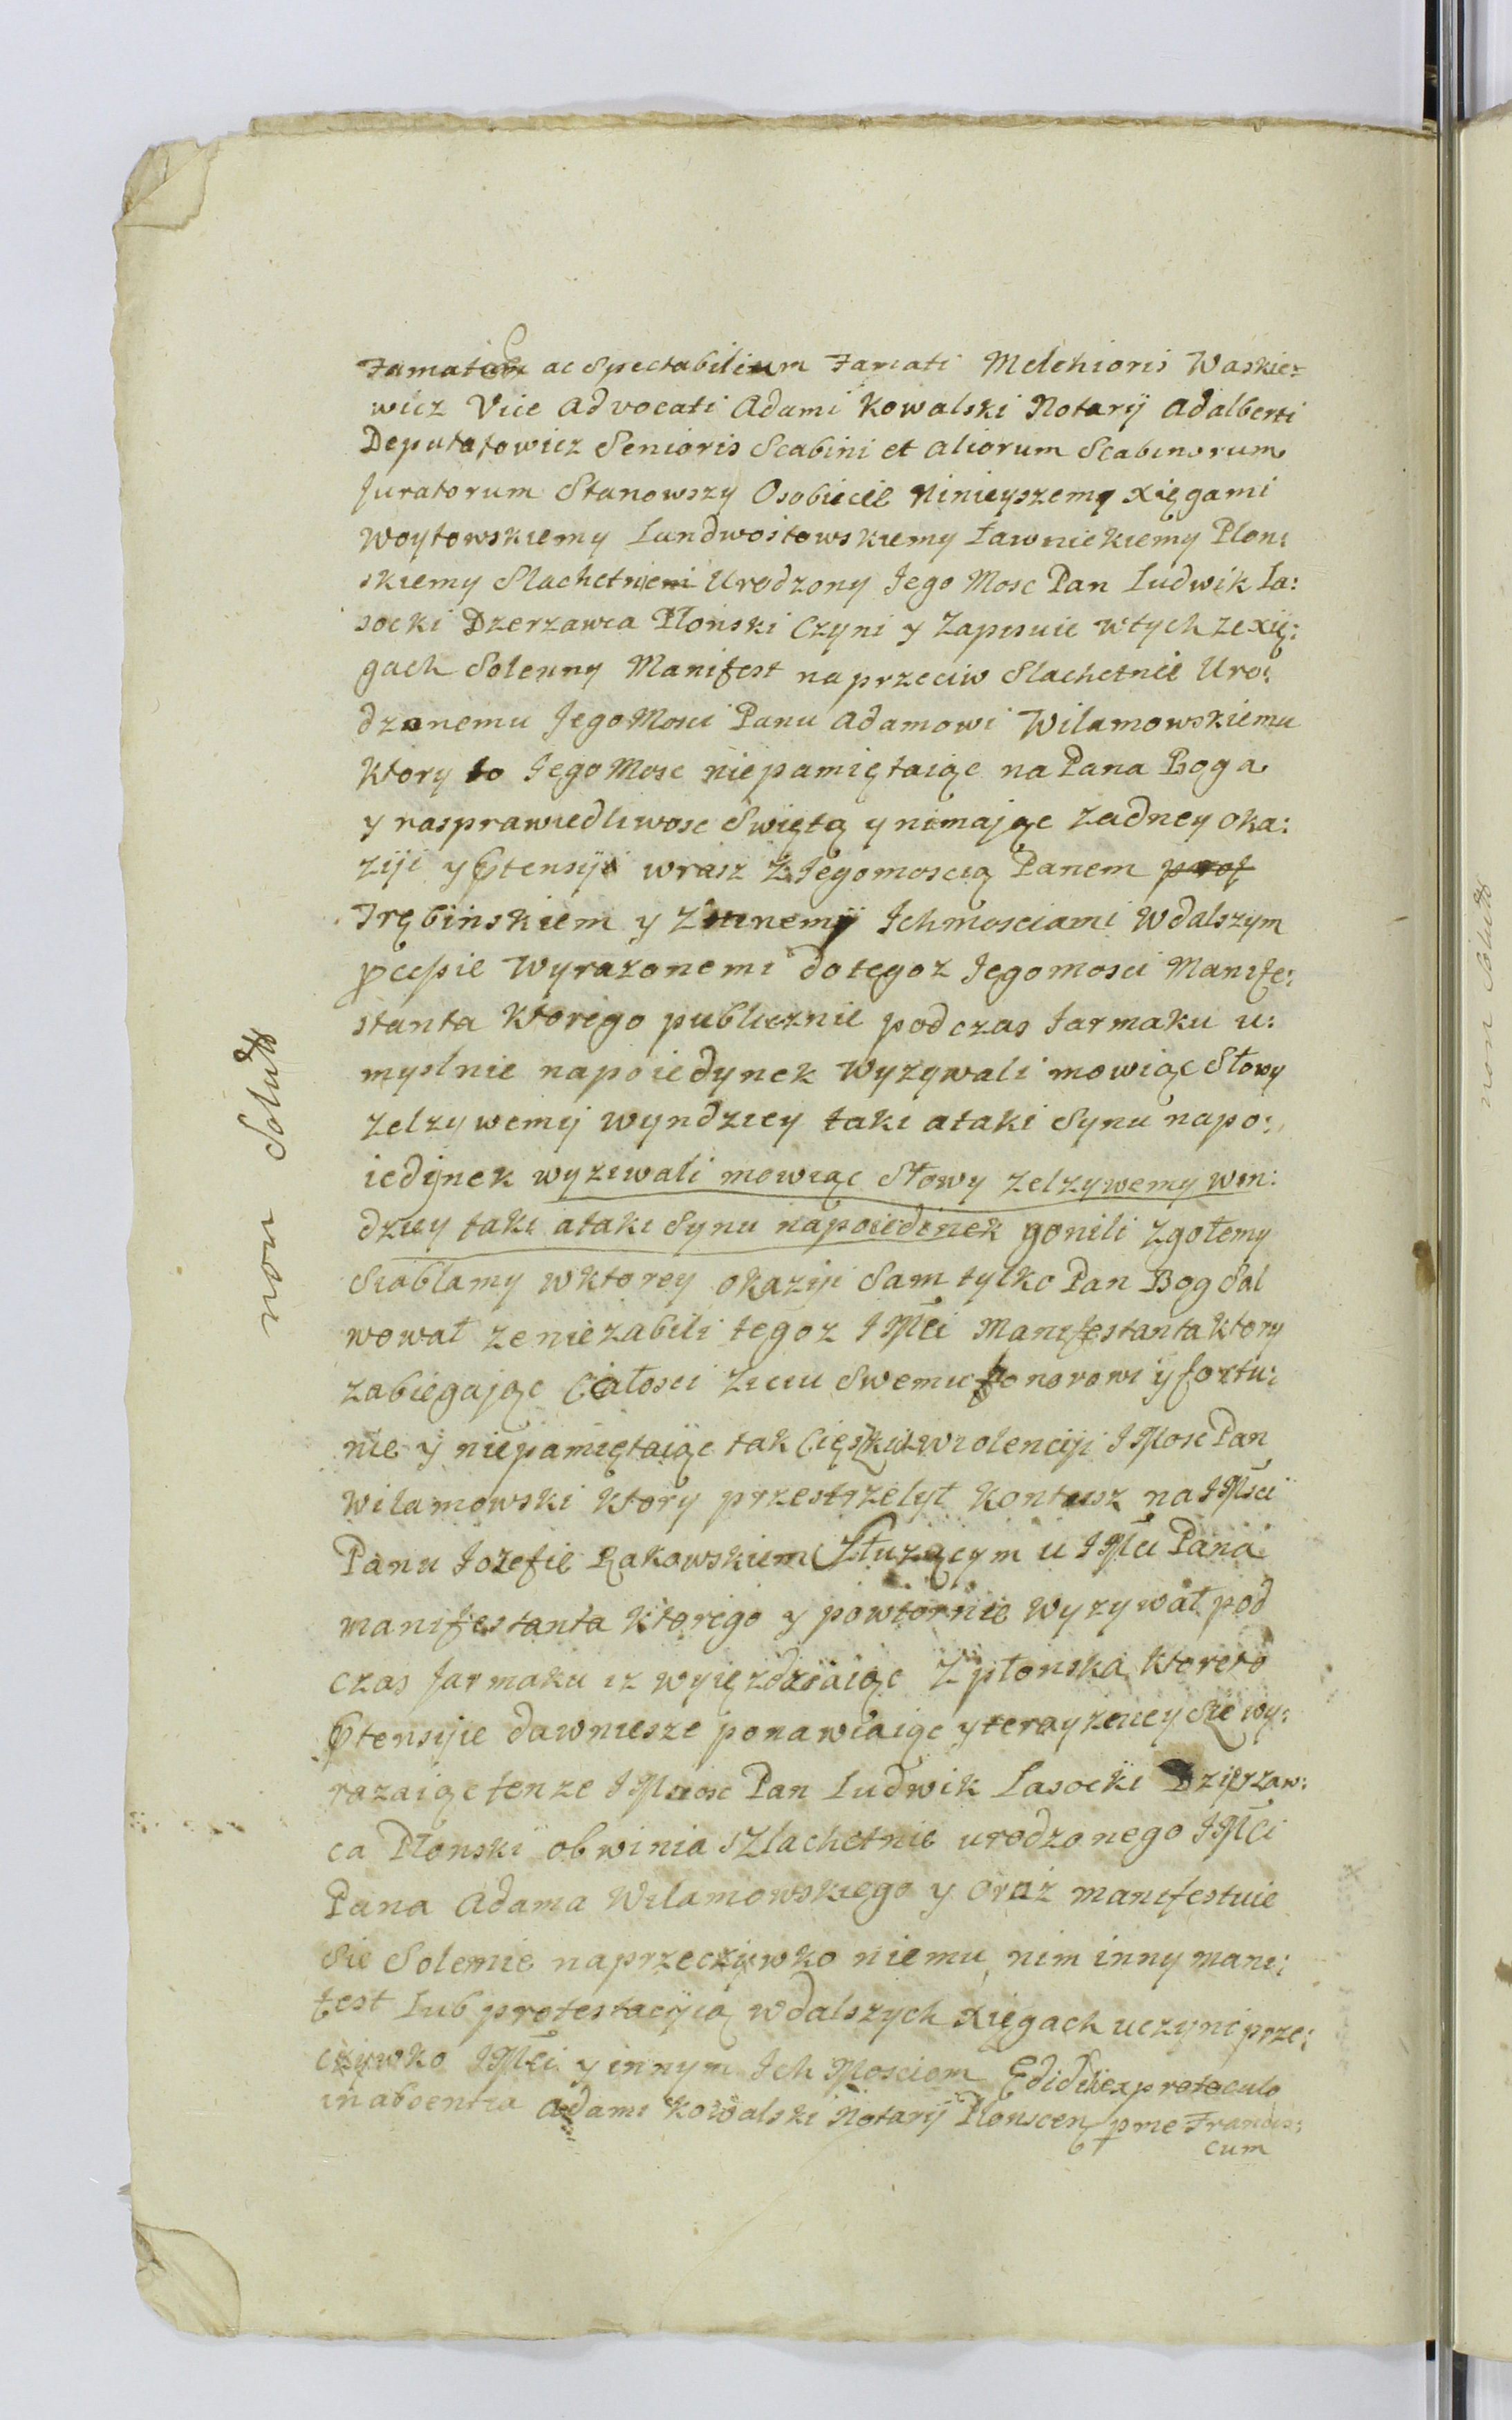 Famatorum ac Spectabilium Famati Melchioris Waskie=
wicz Vice Advocati Adami Kowalski Notarÿ Adalberti
Deputatowicz Senioris Scabini et Aliorum Scabinorum
Juratorum Stanowszy Osobiscie Ninieyszemy Xięgami
Woytowskiemy Landwoitowskiemy Ławnickiemy Plon:
skiemy Slachetnie Urodzony Jego Mosc Pan Ludwik La:
socki Dzerzawca Płonski Czyni y Zapisuie wtych ze xię:
gach Solenny Manifest naprzeciw Slachetnie Uro:
dzonemu Jego Mosci Panu Adamowi Wilamowskiemu
Ktory to Jego Mosc niepamiętaiąc na Pana Boga
y nasprawiedliwosc Swiętą y nimając Zadney oka:
ziji y Ptensyi wrasz z Jegomoscią Panem
Trębinskiem y Zinnemÿ Ichmosciami wdalszym
pcessie Wyrazonemi dotegoz Jegomosci Manife:
stanta Ktorego publicznie podczas Jarmaku u:
myslnie napoiedynek Wyzywali mowiąc Słowy
Zelzywemij wyndziey taki ataki Synu napo:
iedijnek wyziwali mowiąc Słowy zelzywemy win:
dziey taki ataki Synu napoiedinek gonili Zgołemy
Siablamy wktorey okaziji Sam tylko Pan Bog Sal
wował ze niezabili tegoz JMci Manifestanta ktory
zabiegając Całosci Zicu Swemu honorowi y fortu:
nie y niepamiętaiąc tak Cięszkij wiolenciji JMosc Pan
Wilamowski Ktory przestrzelyt Kontusz na JMsci
Panu Jozefie Rakowskiem Słuzącym u JMci Pana
manifestanta Ktorego y powtornie Wyzywał pod
czas Jarmaku iz wyięzdzaiąc Zpłonska, Ktorero
Ptensijie dawniesze ponawiaiąc y terayzniey Sze wy:
razaiąc tenze JMosc Pan Ludwik Lasocki Dzierzaw:
ca Płonski obwinia Szlachetnie urodzonego JMCi
Pana Adama Wilamowskiego y oraz manifestuie
Sie Solemie naprzeczijwko niemu, nim inny mani:
fest lub protestaciją wdalszych Xięgach uczyni prze:
czywko JMci y innym Ich Mosciom Edidi ex protoculo
in absentia Adami Kowalski Notarij Plonscen pme Francis:
cum
non Solutt
non Solutt